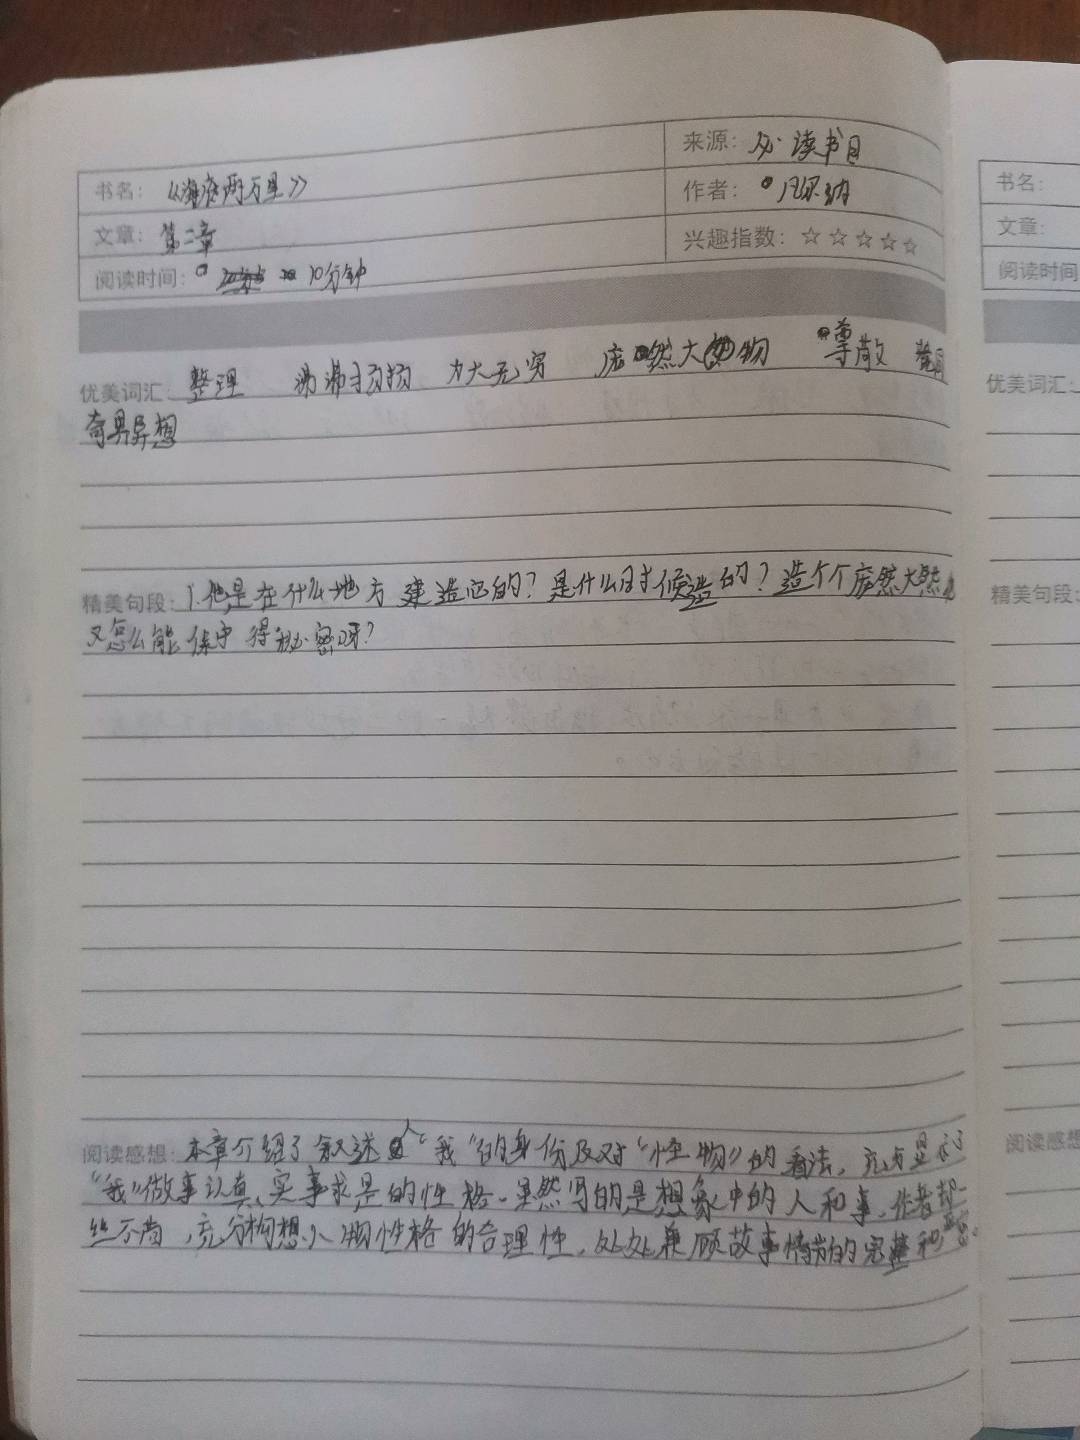 来源：必读书目
书名：《海底两万里》
作者：凡尔纳
文章：第二章
兴趣指数：☆☆☆☆☆
阅读时间：10分钟
优美词汇：整理 沸沸扬扬 力大无穷 庞然大物 尊敬
奇思异想
精美句段：1.他是在什么地方建造它的？是什么时候造的？造个个庞然大
又怎么能保守得秘密呀？
阅读感想：本章介绍了叙述人“我”的身份及对“怪物”的看法，充分显示了
“我”做事认真、实事求是的性格。虽然写的是想象中的人和事，作者却一
丝不苟，充分构想人物性格的合理性，处处兼顾故事情节的完整和
书名：
文章：
阅读时间
优美词汇：
精美句段：
阅读感想